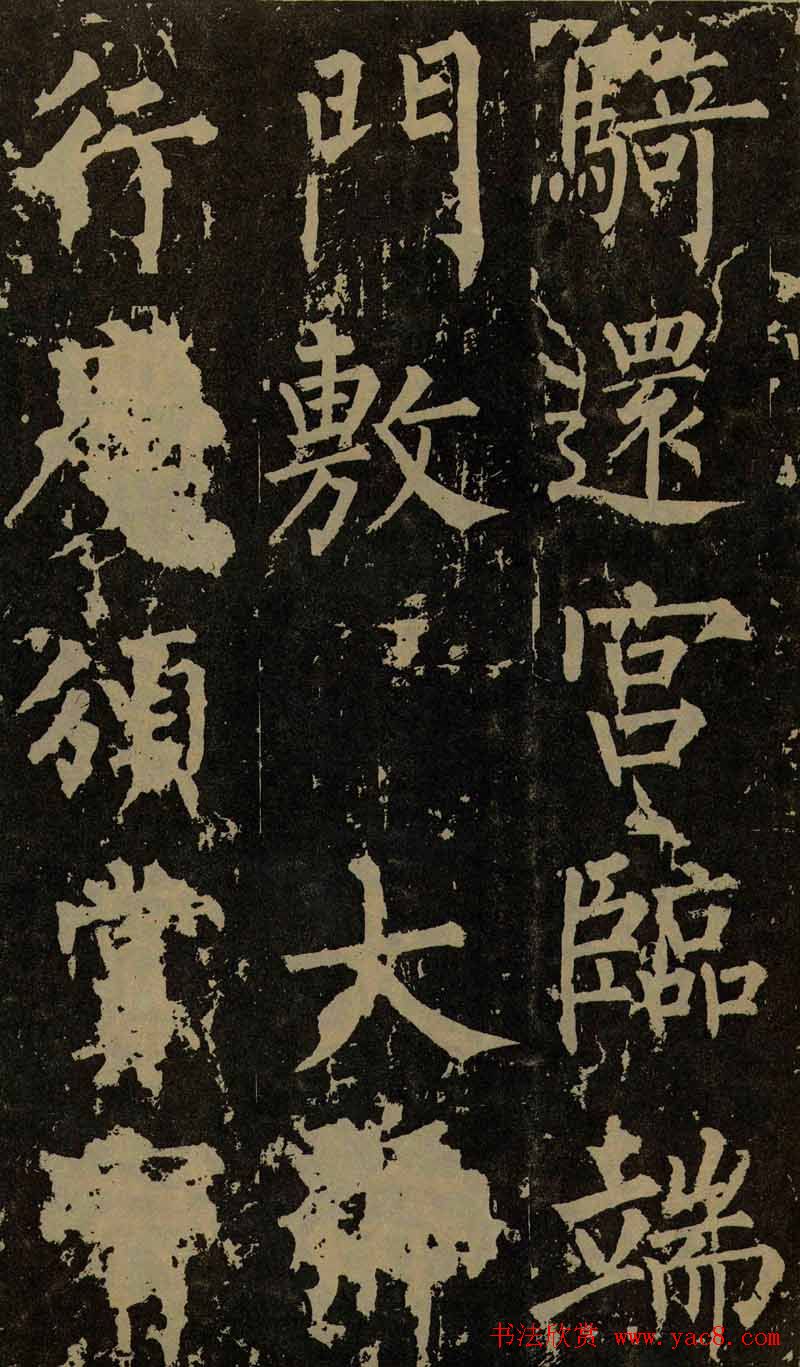 騎還宮臨端
門敷大
行頒賞
书法欣赏 www.yac8.com